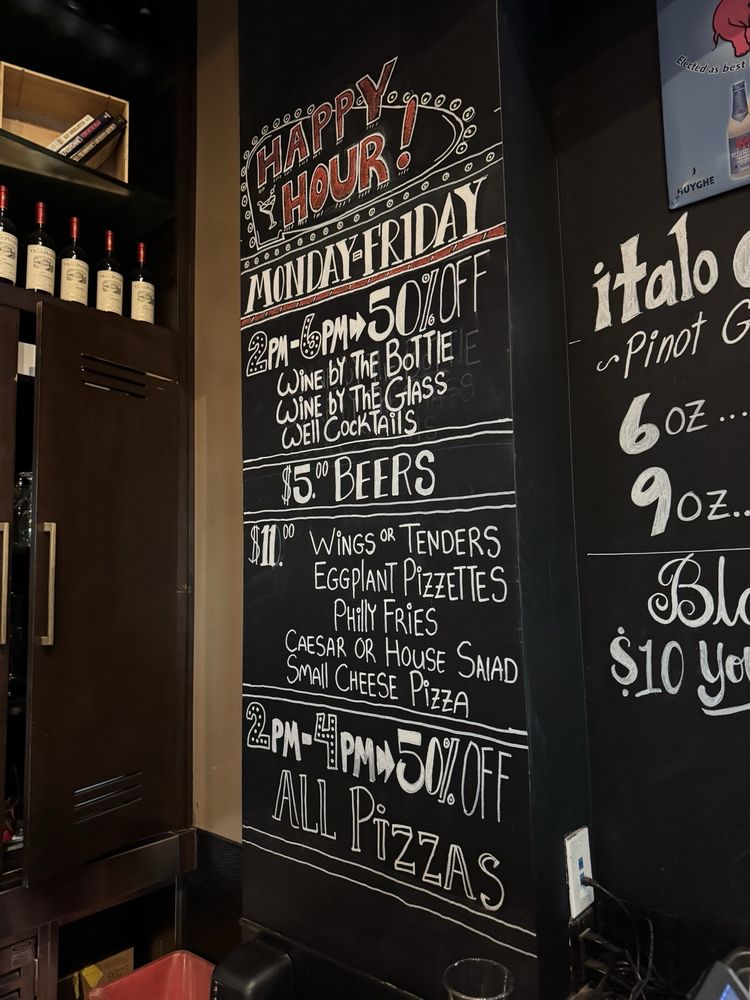 HAPPY
HOUR!
MONDAY-FRIDAY
2PM-6PM➡50% OFF
WINE BY THE BOTTLE
WINE BY THE GLASS
WELL COCKTAILS
$5.00 BEERS
$11.00 WINGS OR TENDERS
EGGPLANT PIZZETTES
PHILLY FRIES
CAESAR OR HOUSE SALAD
SMALL CHEESE PIZZA
2PM-4PM➡50% OFF
ALL PIZZAS
Elected as best
HUYGHE
italo
~Pinot G
6 oz ...
9 oz..
Bla
$10 You